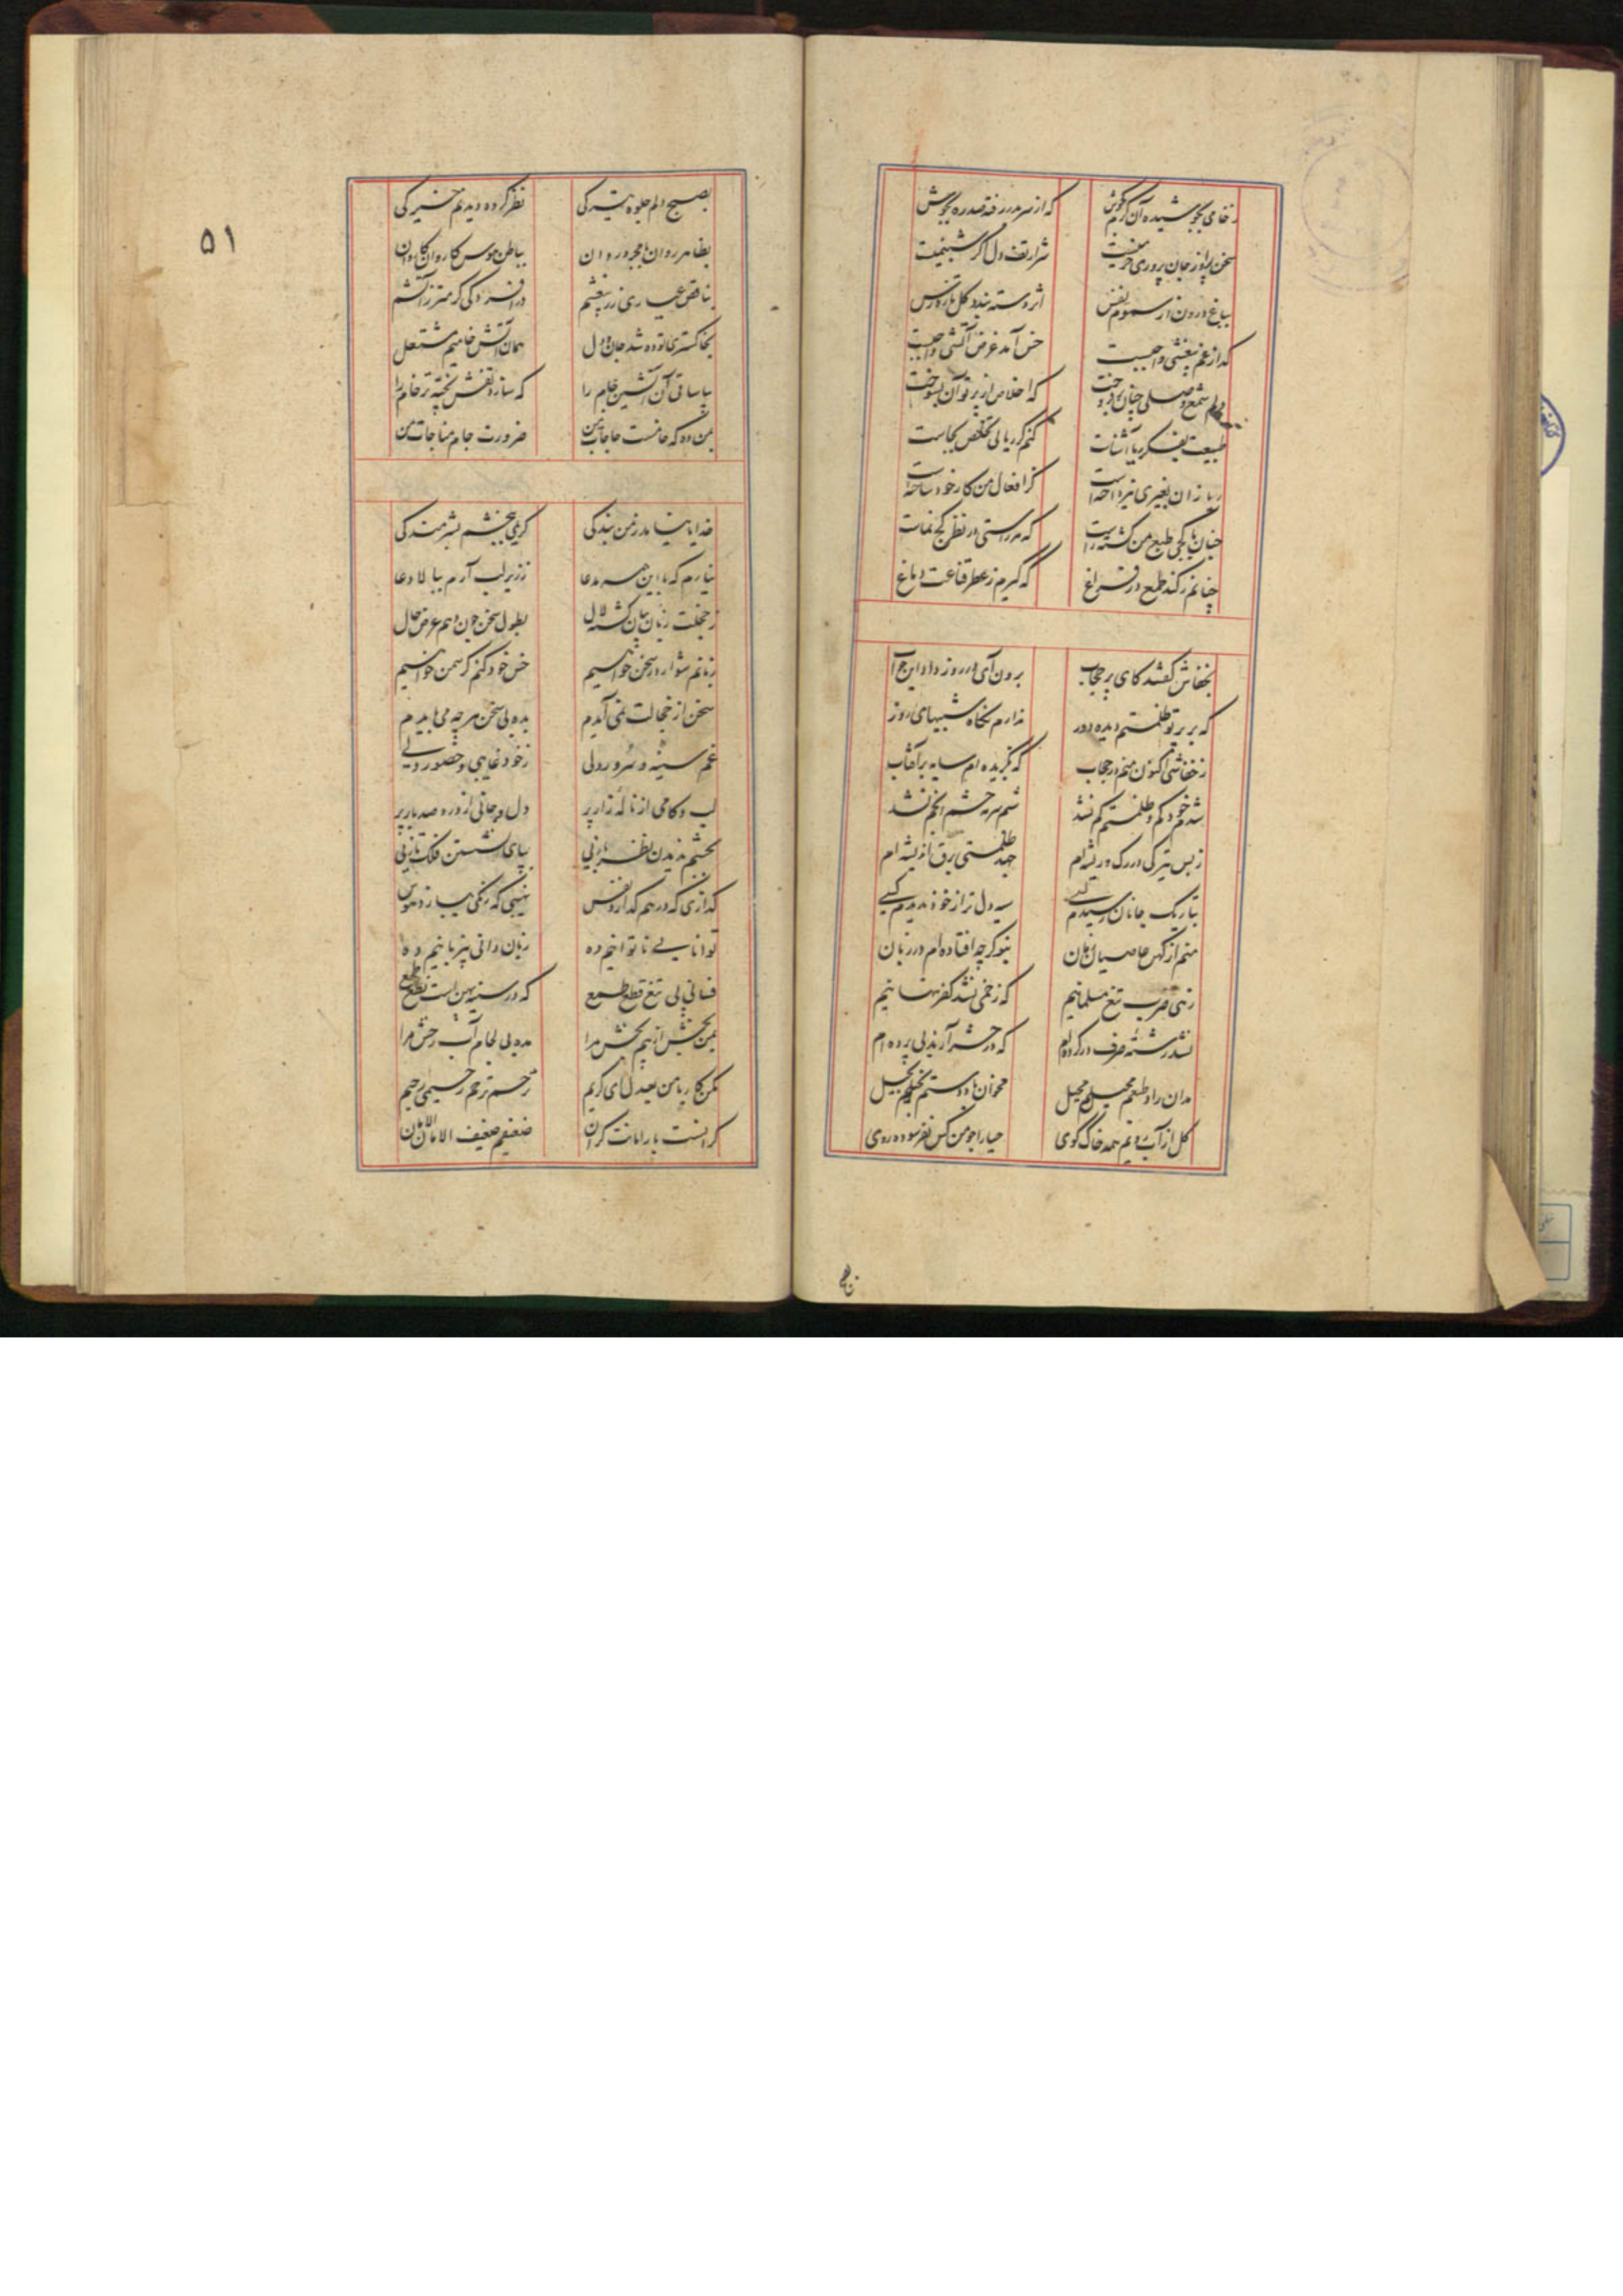 که از سر بدر رفته صد ره بجوش
سخن پرور جان پروری
شرار تف دل کر شبنمیست
بباغ درون از سموم نفس
اثر دسته بندد کل تازه رس
خس آمد غرض آتشی واجبست
دلم شمع وصلی چنان بر فروخت
که اخلاص از پرتو آن بسوخت
طبیعت بفکر ریا آشناست
کنم کر ریا لی تخلص بجاست
ریا زان بغیری نپرداخته است
کز افعال من کار خود ساخته است
چنان با کجی طبع من کشته راست
که هر راستی در نظر کج نماست
چنانم نکند طمع در فراغ
که کیرم ز عطر قناعت دماغ
بخفاش کفتند کای پر حجاب
برون آی در روز داد این جواب
که بر پرتو ظلمتم دیده دور
ندارم نکاه شبیهای روز
ز خفاشی اکنون منم در حجاب
که بکزیده ام سایه بر آفتاب
شدم خود کم و ظلمتم کم نشد
شبم سرمه چشم انجم نشد
ز بس تیرکی در رک و ریشه ام
جهد ظلمتی برق اندیشه ام
بتاریک جانان رسیدم کسی
سیه دل تر از خود ندیدم کسی
منم از کهن عاصیان زمان
بنو کر چه افتاده ام در زبان
زهی ضرب تیغ مسلمانیم
که زخمی نشد کفر پنهانیم
نشد رشته صرف در کرده ام
که در حشر آرند بی پرده ام
مدان راد طبعم محیلم محیل
مخوان با دو دستم بخیلم بخیل
کل از آب رویم همه خاک کوی
حیا را جو من کس نفرسوده روی
۵۱
بصبح دلم جلوه تیرکی
نظر کرده دیدنم خیرکی
بظاهر روان با مجرد روان
بباطن هوس کاروان کاروان
بناقص عیاری زر بیغشم
در افسردکی کرمتر ز آتشم
بخاکستری توده شد جان و دل
همان آتش خامیم مشتعل
بیا ساقی آن آتشین جام را
که سازد تفش پخته تر خام را
بمن ده که جامست حاجات من
ضرورت جام مناجات من
خدایا نیامد ز من بندکی
کریمی ببخشم بشرمندکی
نیارم که با این همه مدعا
ز زیر لب آرم ببالا دعا
ز خجلت زبان بیان کشته لال
بطول سخن چون دهم عرض حال
زبانم سوار در سخن خواهیم
خس خود کنم کر سمن خواهیم
سخن از خجالت نمی آیدم
بده بی سخن هر چه می بایدم
غم سینه و سرور دلی
ز خود غایبی و حضور دلی
لب و کامی از ناله زار پر
دل و جانی از درد صد بار پر
بچشم ندیدن نظر بازیی
بپای شستن فلک تازیی
کدازی که در هم کدازد نفس
نهیبی که رنکی نبازد هوس
توانایی ناتوانیم ده
زبان دانی بیزبانیم ده
فسانی پی تیغ قطع طمع
که در سینه پهن است نطع طمع
بمن بخش از بیم بخش مرا
مده بی لجام آب رخش مرا
مکن کج ریا من بعدل ای کریم
ترحم ترحم رحیمی رحیم
کرانست بار امانت کران
ضعیفم ضعیف الامان الامان